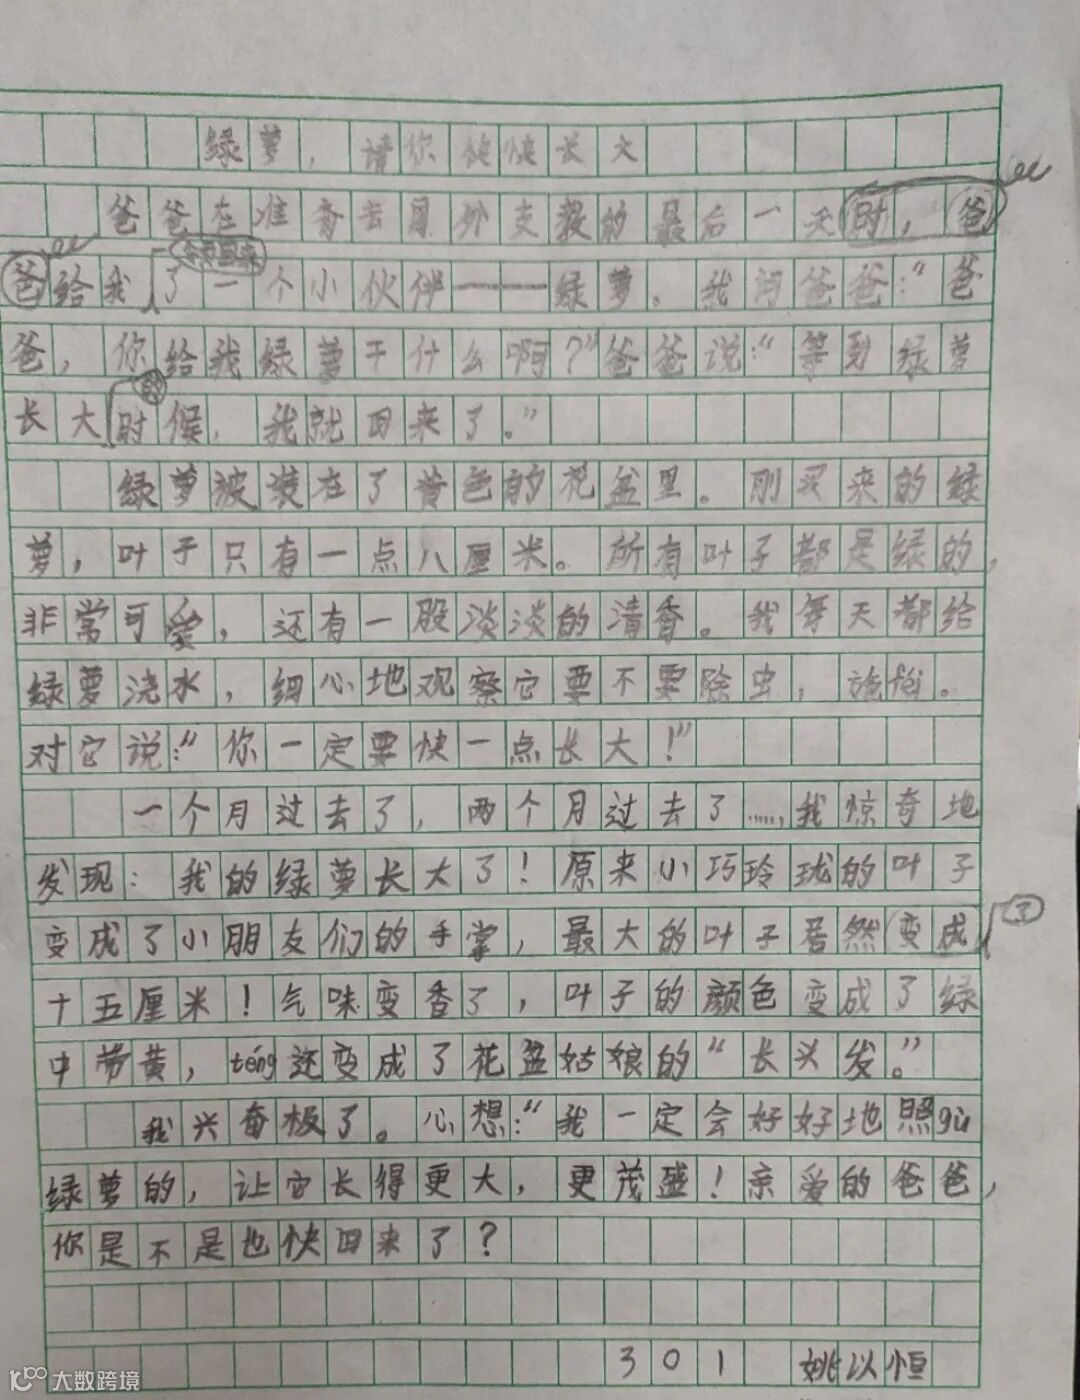 绿萝，请你快快长大
爸爸在准备去国外支教的最后一天时，爸
爸给我了一个小伙伴——绿萝。我问爸爸：“爸
爸，你给我绿萝干什么啊？”爸爸说：“等到绿萝
的
长大时候，我就回来了。”
绿萝被装在了黄色的花盆里。刚买来的绿
萝，叶子只有一点八厘米。所有叶子都是绿的，
非常可爱，还有一股淡淡的清香。我每天都给
绿萝浇水，细心地观察它要不要除虫，施肥。
对它说：“你一定要快一点长大！”
一个月过去了，两个月过去了……我惊奇地
发现：我的绿萝长大了！原来小巧玲珑的叶子
变成了小朋友们的手掌，最大的叶子居然变成
了
十五厘米！气味变香了，叶子的颜色变成了绿
中带黄，téng还变成了花盆姑娘的“长头发。”
我兴奋极了。心想：“我一定会好好地照gù
绿萝的，让它长得更大，更茂盛！亲爱的爸爸，
你是不是也快回来了？
301 姚以恒
大数跨境